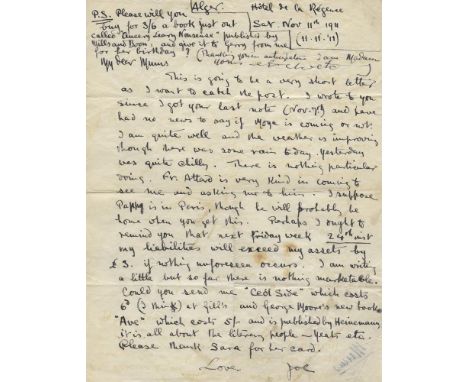 Alger.
Hôtel de la Régence
Sat. Nov 11th 1911
(11.11.11)
P.S. Please will you
buy for 3/6 a book just out
called "Queery Leary Nonsense" published by
Mills and Boon, and give it to Gerry from me
for her birthday? (Thanking you in anticipation I am Madam
Yours
My dear Mums
This is going to be a very short letter
as I want to catch the post. I wrote to you
since I got your last note (Nov. 7th) and have
had no news to say if Moya is coming or not.
I am quite well and the weather is improving
though there was some rain today. Yesterday
was quite chilly. There is nothing particular
doing. Fr. Attard is very kind in coming to
see me and asking me to him. I suppose
Pappy is in Paris, though he will probably be
home when you get this. Perhaps I ought to
remind you that next Friday week 24th inst
my liabilities will exceed my assets by
£3. if nothing unforeseen occurs. I am writing
a little but so far there is nothing marketable.
Could you send me "Ceól Sidhe" which costs
6d (I think) at Gill's and George Moore's new book
"Ave" which costs 5/- and is published by Heinemann
it is all about the literary people – Yeats etc.
Please thank Sara for her card.
Love Joe